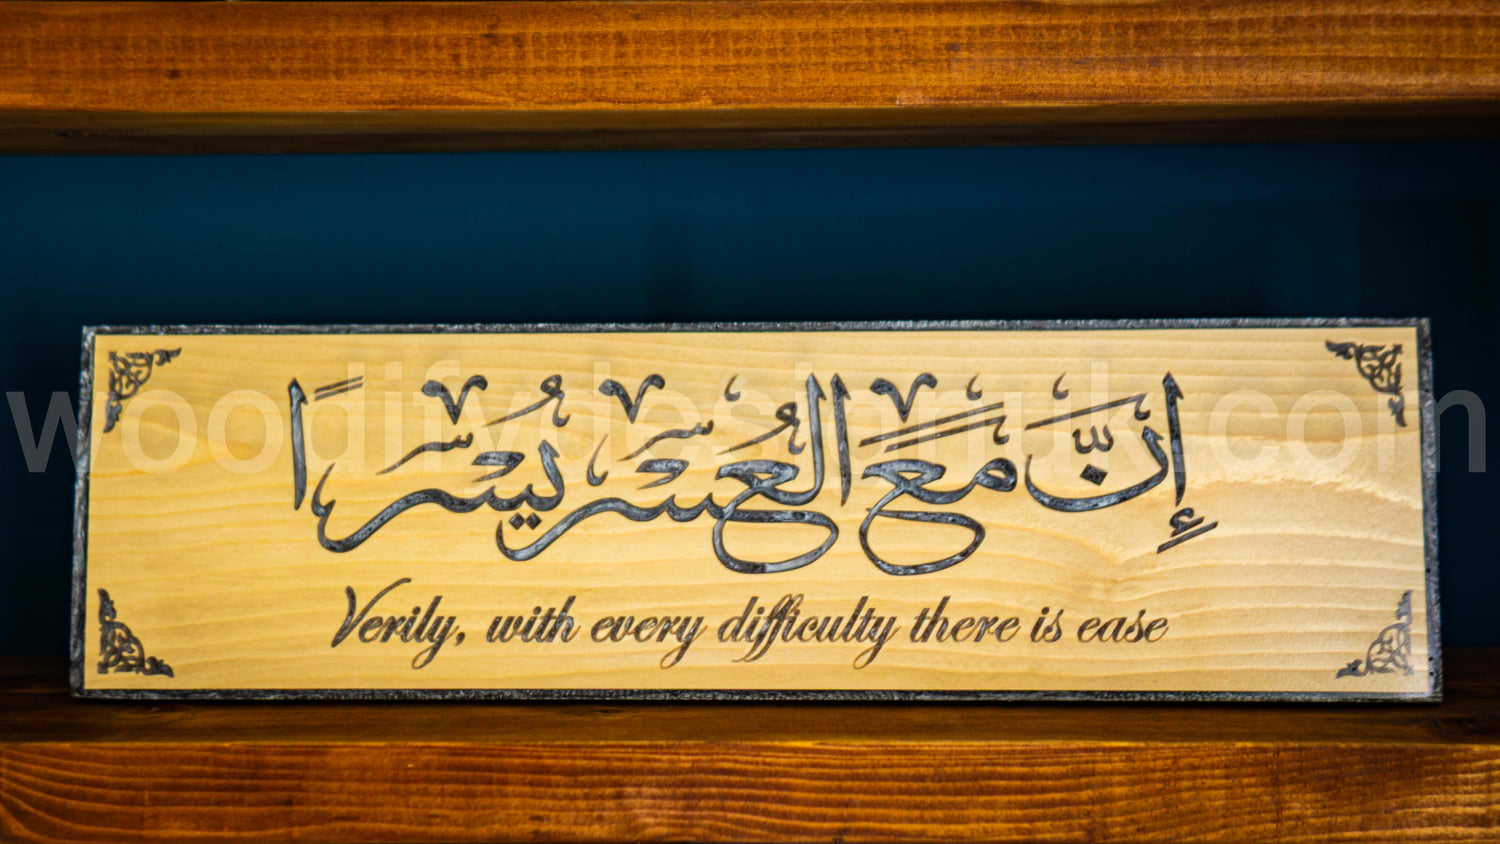 إِنَّ مَعَ الْعُسْرِ يُسْرًا
Verily, with every difficulty there is ease
woodifydesignuk.com